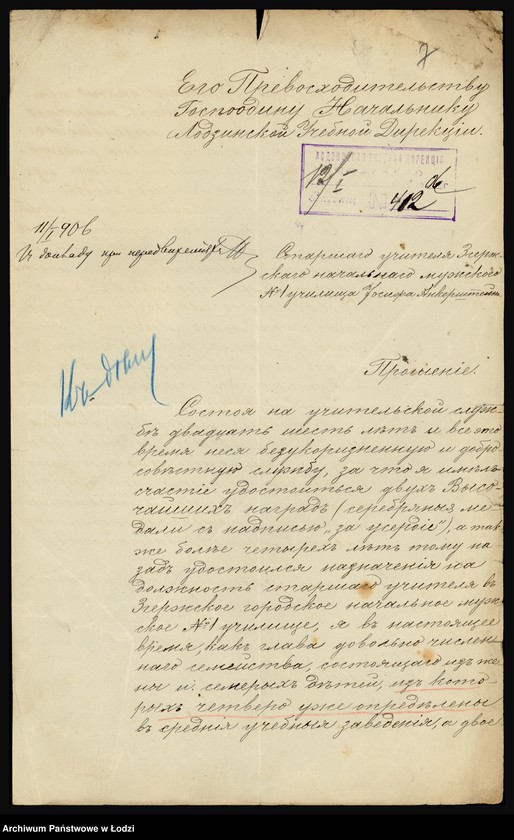 7
Его Превосходительству
Господину Начальнику
Лодзинской Учебной Дирекціи.
12/I
412
11/I 906
Старшаго учителя Згерж-
скаго начальнаго мужского
№1 училища
Прошеніе.
Къ докл
Состоя на учительской служ-
бѣ двадцать шесть лѣтъ и все это
время неся безукоризненную и добро-
совѣстную службу, за что я имѣлъ
счастіе удостоиться двухъ Высо-
чайшихъ наградъ (серебряныя ме-
дали съ надписью „за усердіе“), а так-
же болѣе четырехъ лѣтъ тому на-
задъ удостоился назначенія на
должность старшаго учителя въ
Згержское городское начальное муж-
ское №1 училище, я въ настоящее
время, какъ глава довольно числен-
наго семейства, состоящаго изъ же-
ны и семерыхъ дѣтей, изъ кото-
рыхъ четверо уже опредѣлены
въ среднія учебныя заведенія, а двое
Archiwum Państwowe w Łodzi